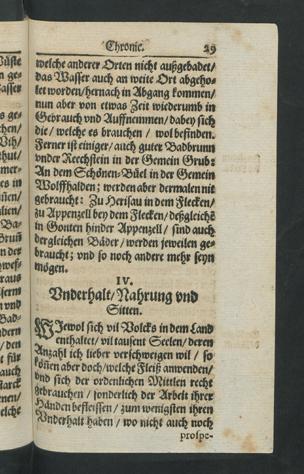 Chronic. 29
welche anderer Orten nicht außgebadet/
das Wasser auch an weite Ort abgeho-
let worden/hernach in Abgang kommen/
nun aber von etwas Zeit wiederumb in
Gebrauch vnd Auffnemmen/dabey sich
die/welche es brauchen/wol befinden.
Ferner ist einiger/auch guter Badbrunn
vnder Reechstein in der Gemein Grub:
An dem Schönen-Büel in der Gemein
Wolffhalden; werden aber dermalen nit
gebraucht: Zu Herisau in dem Flecken/
zu Appenzell bey dem Flecken/deßgleichē
in Gonten hinder Appenzell/sind auch
dergleichen Bäder/werden jeweilen ge-
braucht; vnd so noch andere mehr seyn
mögen.
IV.
Vnderhalt/Nahrung vnd
Sitten.
WIewol sich vil Volcks in dem Land
enthaltet/vil tausent Seelen/deren
Anzahl ich lieber verschweigen wil/so
köñen aber doch/welche Fleiß anwenden/
vnd sich der ordenlichen Mittlen recht
gebrauchen/sonderlich der Arbeit ihrer
Händen befleissen/zum wenigsten ihren
Vnderhalt haben/wo nicht auch noch
prospe-